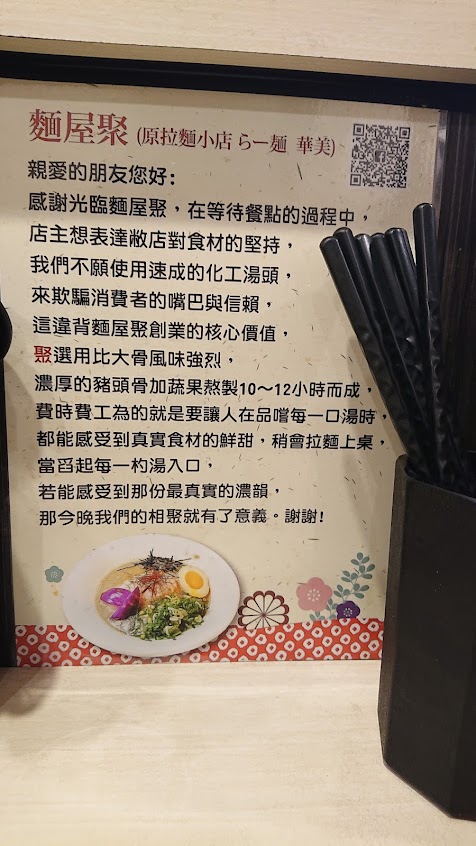 麵屋聚 (原拉麵小店 らー麺 華美)
親愛的朋友您好:
感謝光臨麵屋聚，在等待餐點的過程中，
店主想表達敝店對食材的堅持，
我們不願使用速成的化工湯頭，
來欺騙消費者的嘴巴與信賴，
這違背麵屋聚創業的核心價值，
聚選用比大骨風味強烈，
濃厚的豬頭骨加蔬果熬製10～12小時而成，
費時費工為的就是要讓人在品嚐每一口湯時，
都能感受到真實食材的鮮甜，稍會拉麵上桌，
當舀起每一杓湯入口，
若能感受到那份最真實的濃韻，
那今晚我們的相聚就有了意義。謝謝!